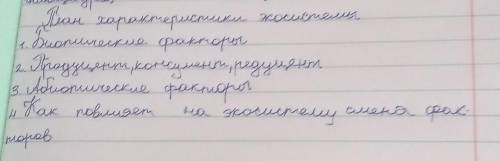 План характеристики экосистемы
1. Биотические факторы
2. Продуцент, консумент, редуцент
3. Абиотические факторы
4. Как повлияет на экосистему смена фак-
торов